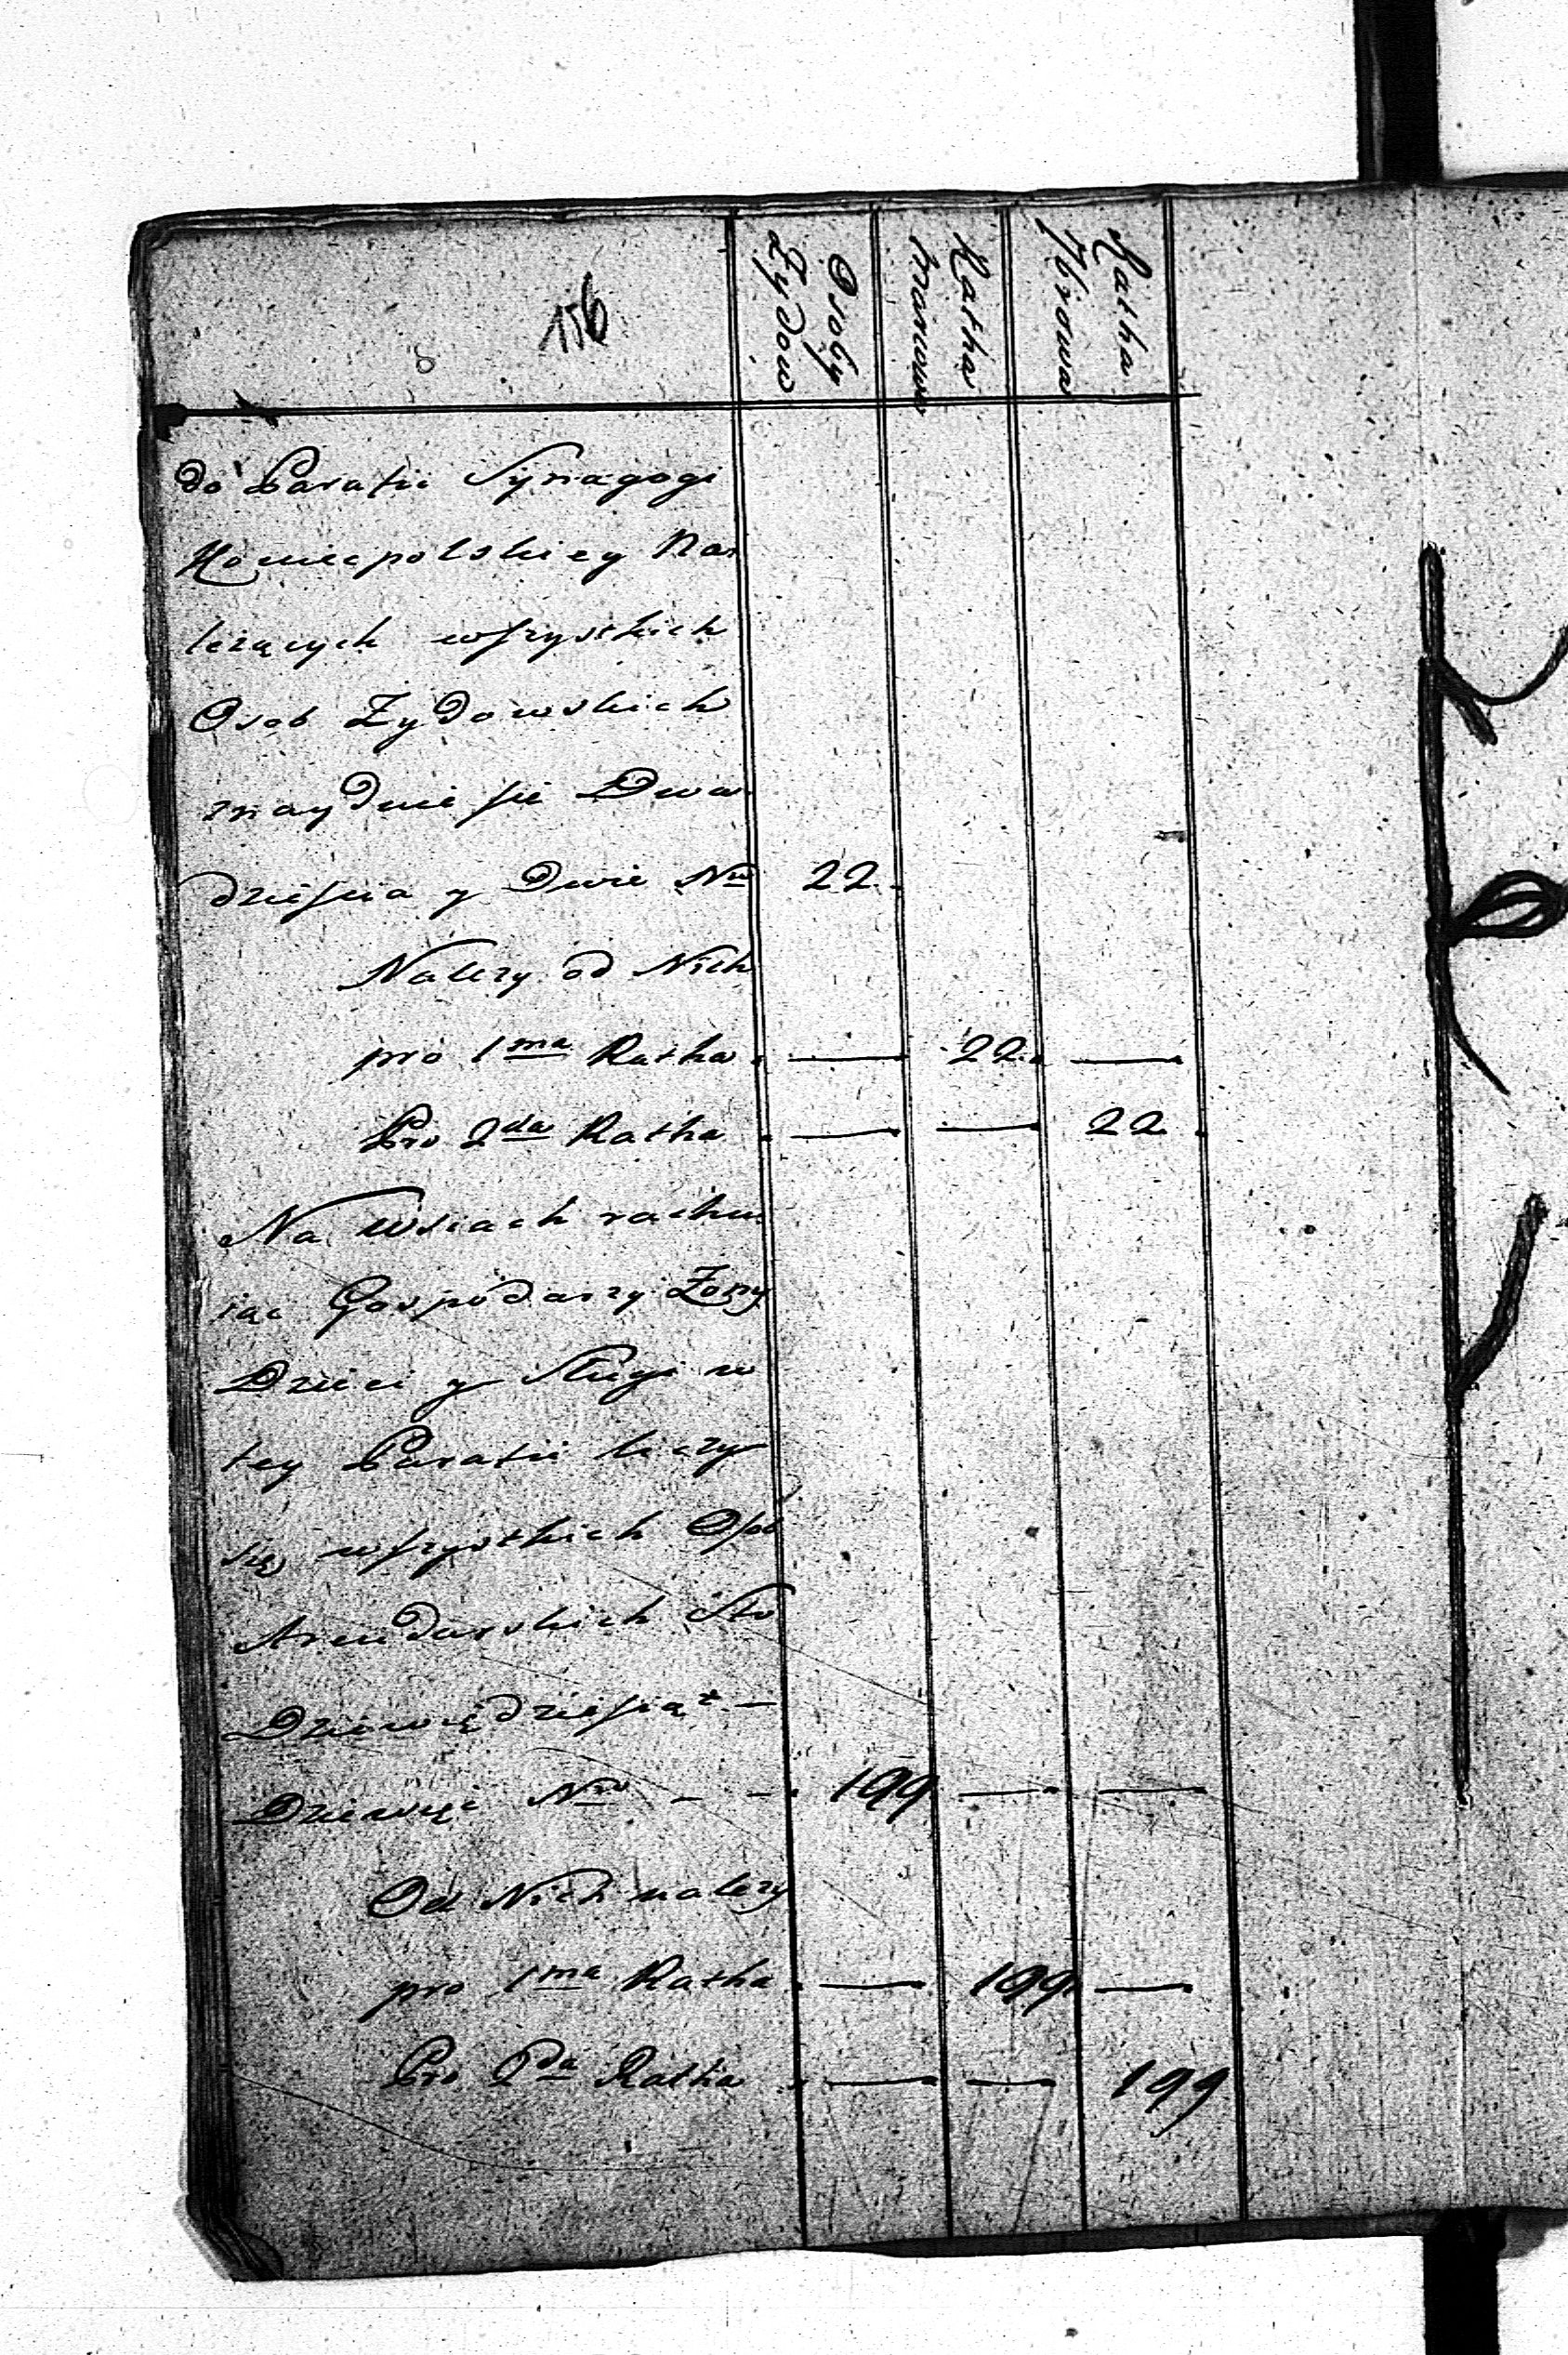 156
Osoby
Zydow
Ratha
Marcowa
Ratha
7browa
do Parafii Synagogi
Koniecpolskiey Na
lezących wszystkich
Osob Zydowskich
znayduie się Dwa
dzieścia y Dwie Nro 22.
Nalezy od Nich
pro 1ma Ratha — 22 —
Pro 2da Ratha — — 22
Na Wsiach rachu
iąc Gospodarzy Zony
Dzieci y Sługi w
tey Parafii liczy
się wszystkich Osob
Arendarskich Sto
Dziewiędziesiąt —
Dziewięć Nro - - 199 — —
Od Nich nalezy
pro 1ma Ratha — 199 —
Pro 2da Ratha — — 199